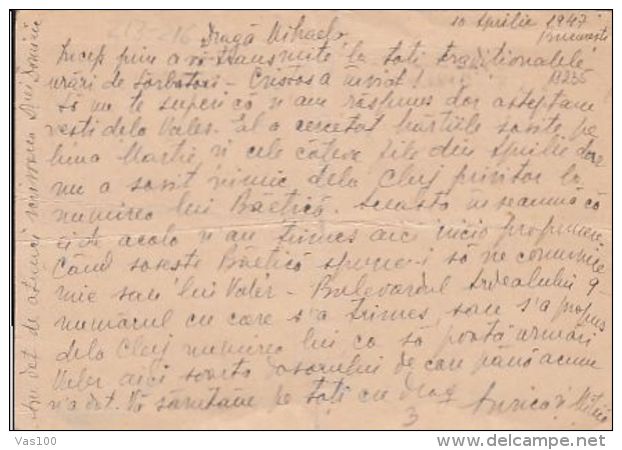 10 Aprilie 1947
București
Dragă Mihaela
Încep prin a vă transmite la toți tradiționalele
urări de sărbători - Cristos a înviat!
Să nu te superi că n'am răspuns dar așteptam
vești dela Valer. El a cercetat hârtiile sosite pe
luna Martie și cele câteva zile din Aprilie dar
nu a sosit nimic dela Cluj privitor la
numirea lui Băetică. Aceasta înseamnă că
ei de acolo n'au trimes aici nicio propunere.
Când sosește Băetică spune-i să ne comunice
mie sau lui Valer - Bulevardul Ardealului 9
numărul cu care s'a trimes, sau s'a propus
dela Cluj numirea lui ca să poată urmări
Valer aici soarta dosarului de care până acum
n'a dat. Vă sărutăm pe toți cu drag
Anricăi
3
Am dat de atunci scrisoarea D-rei Domnica
Vas100
www.delcampe.net